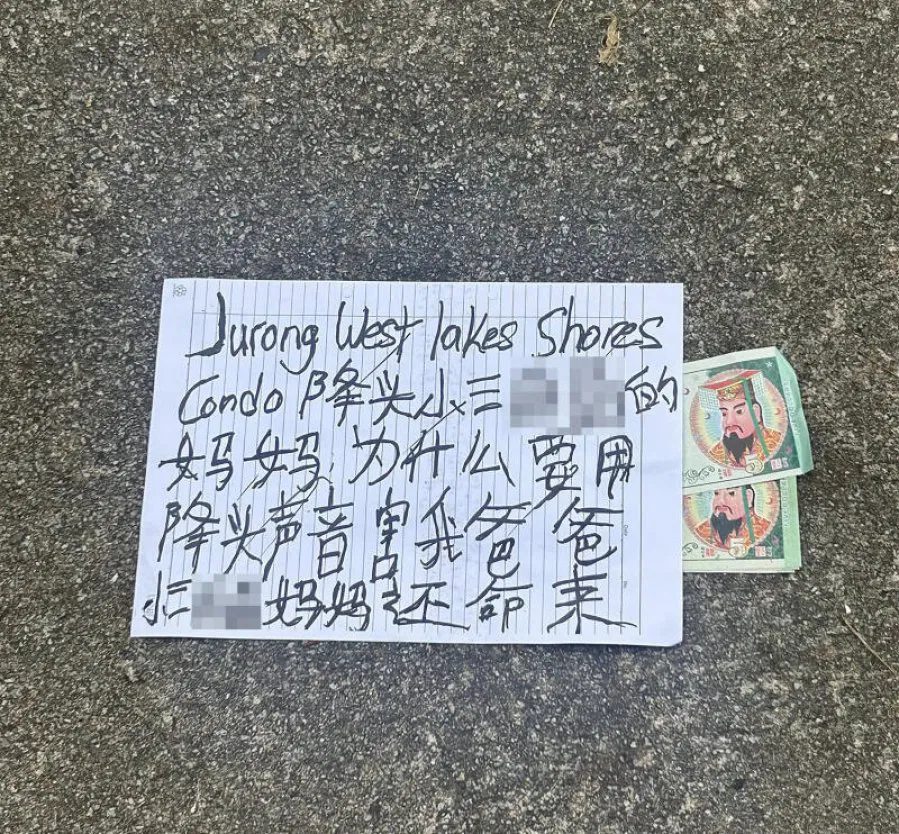 Jurong West lakes Shores
Condo 降头小三 的
妈妈 为什么 要用
降头声音害我爸爸
小三 妈妈还命来
5
5